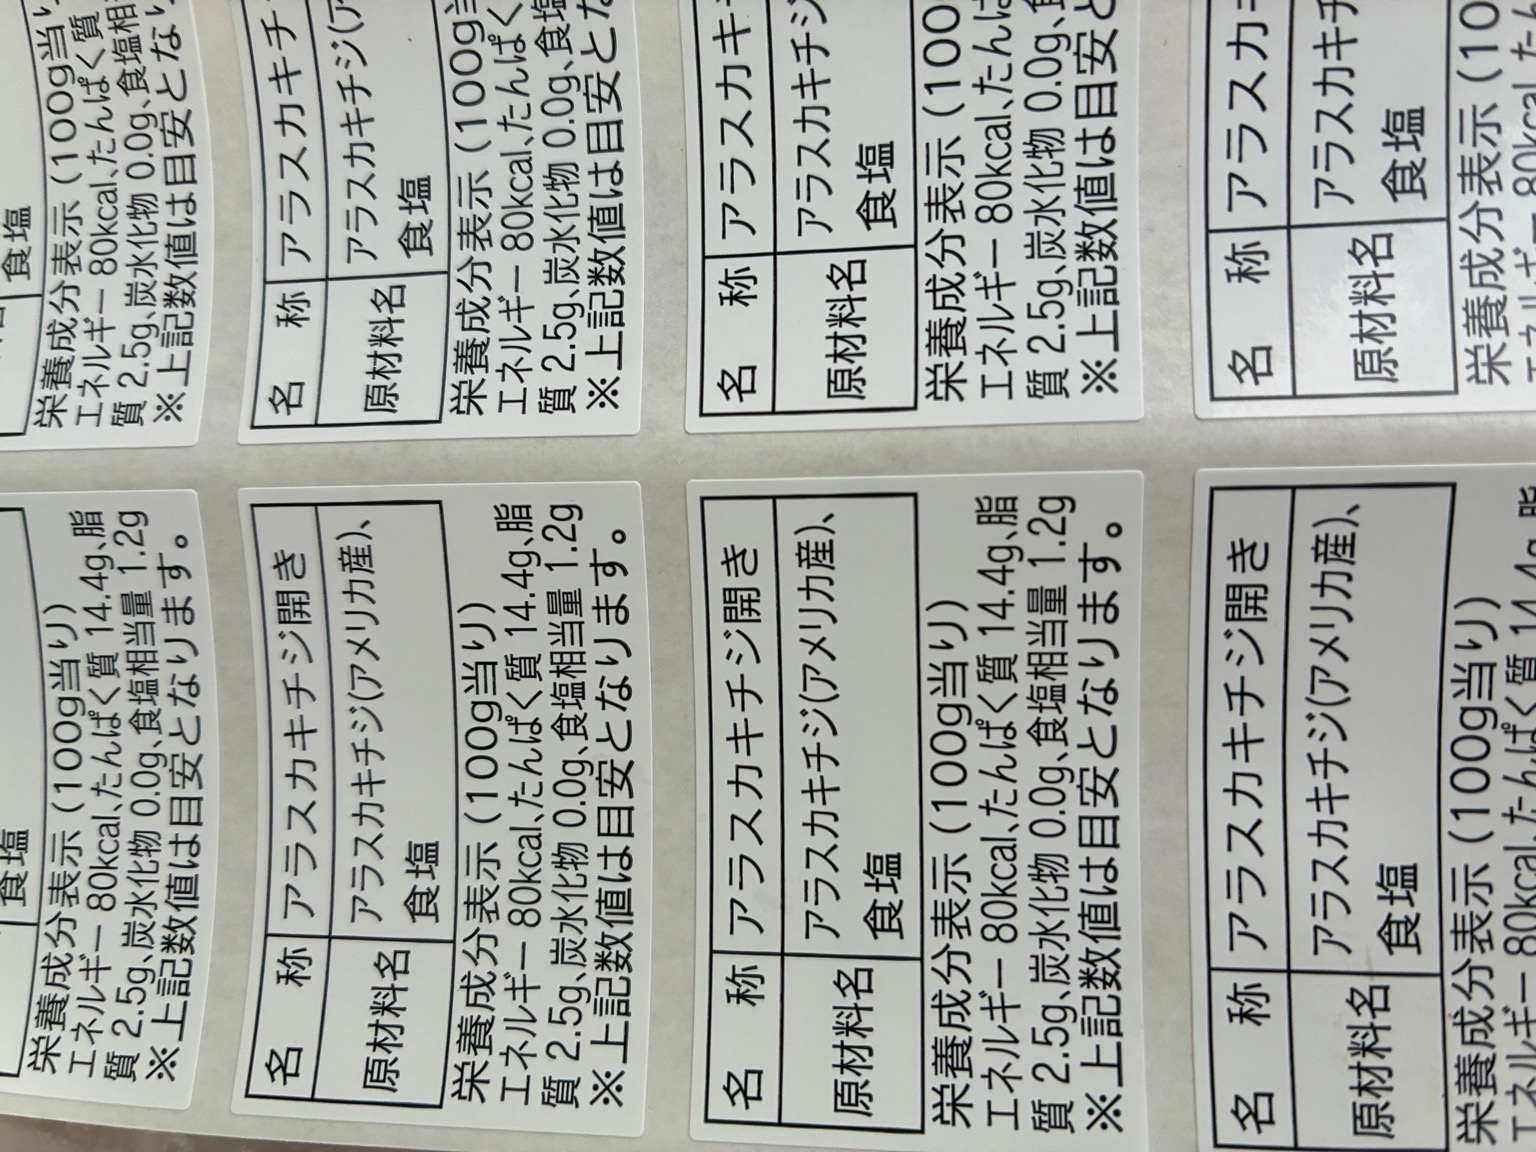 食塩
栄養成分表示（100g当り）
エネルギー 80kcal、たんぱく質 14.4g、脂
質 2.5g、炭水化物 0.0g、食塩相当量 1.2g
※上記数値は目安となります。
食塩
栄養成分表示（100g当り
エネルギー 80kcal、たんぱく質
質 2.5g、炭水化物 0.0g、食塩相
※上記数値は目安となり
名 称 アラスカキチジ開き
原材料名 アラスカキチジ(アメリカ産)、
食塩
栄養成分表示（100g当り）
エネルギー 80kcal、たんぱく質 14.4g、脂
質 2.5g、炭水化物 0.0g、食塩相当量 1.2g
※上記数値は目安となります。
名 称 アラスカキチ
原材料名 アラスカキチジ(ア
食塩
栄養成分表示（100g当
エネルギー 80kcal、たんぱく
質 2.5g、炭水化物 0.0g、食塩
※上記数値は目安とな
名 称 アラスカキチジ開き
原材料名 アラスカキチジ(アメリカ産)、
食塩
栄養成分表示（100g当り）
エネルギー 80kcal、たんぱく質 14.4g、脂
質 2.5g、炭水化物 0.0g、食塩相当量 1.2g
※上記数値は目安となります。
名 称 アラスカキ
原材料名 アラスカキチジ
食塩
栄養成分表示（100
エネルギー 80kcal、たん
質 2.5g、炭水化物 0.0g、
※上記数値は目安と
名 称 アラスカキチジ開き
原材料名 アラスカキチジ(アメリカ産)、
食塩
栄養成分表示（100g当り）
エネルギー 80kcal、たんぱく質
名 称 アラスカ
原材料名 アラスカキチ
食塩
栄養成分表示（10
80kcal、た